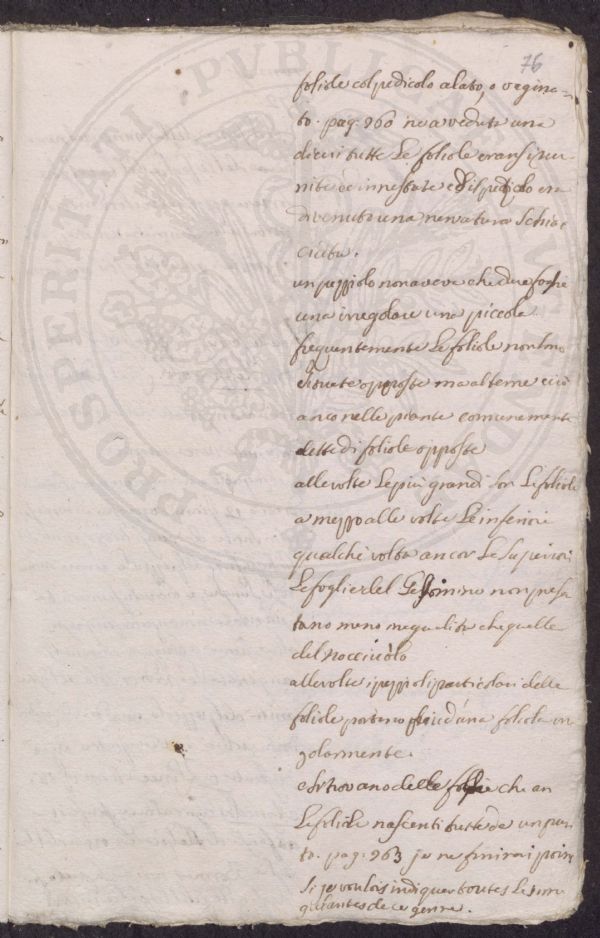 76
foliole col pedicolo alato, o vagina=
to. pag. 960 ne a veduta una
di cui tutte Le foliole eransi riu
nite ed innestate ed il pedicolo era
divenuto una nervatura Schiac
ciata.
un pezziolo non aveva che due foglie
una irregolare una piccola
frequentemente Le foliole non sono
situate opposte ma alterne ciò
anco nelle piante comunemente
dette di foliole opposte
alle volte Le più grandi son Le foliole
a mezzo alle volte Le inferiori
qualche volta ancor Le Superiori
Le foglie del Gelsomino non presen
tano meno inegualità che quelle
del Nocciuolo
alle volte i pezzioli particolari delle
foliole portano più d'una foliola irre
golarmente.
ed si trovano delle foglie che an
Le foliole nascenti tutte da un pun
to. pag. 963 je ne finirai point
Si je voulois indiquer toutes Les
de ce genre.
PROSPERITATI PUBLICAE AUGENDAE